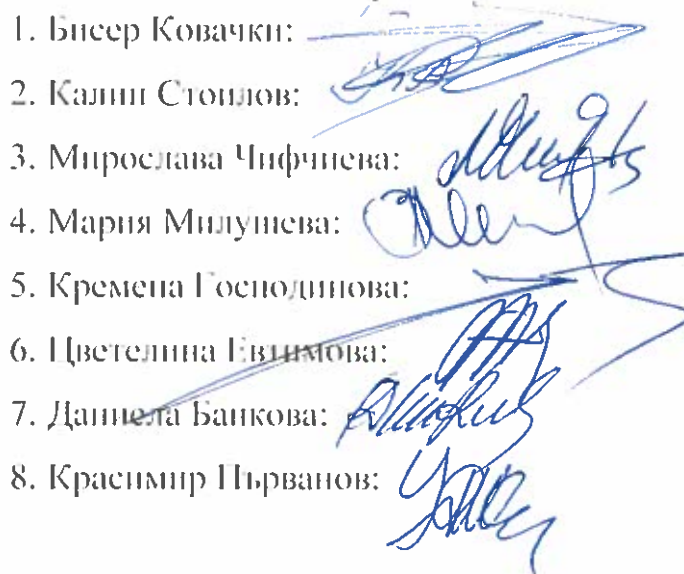 1. Бисер Ковачки:
2. Калин Стоилов:
3. Мирослава Чифчиева:
4. Мария Милушева:
5. Кремена Господинова:
6. Цветелина Евтимова:
7. Даниела Банкова:
8. Красимир Първанов: